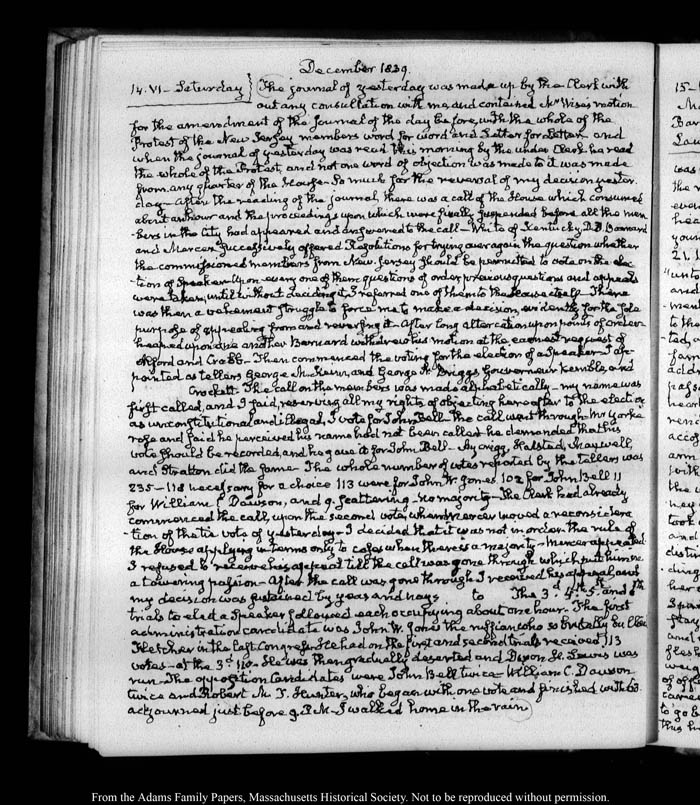 December 1839.
14. VI - Saturday } The journal of yesterday was made up by the Clerk with
out any consultation with me, and contained Mr Wise's motion
for the amendment of the Journal of the day before, with the whole of the
Protest of the New Jersey members word for word and Letter for Letter - and
when the journal of yesterday was read this morning by the under Clerk he read
the whole of the Protest, and not one word of objection was made to it was made
from any quarter of the House - So much for the reversal of my decision yester
day - After the reading of the journal, there was a call of the House which consumed
about an hour and the proceedings upon which were finally suspended before all the mem
-bers in the City had appeared and answered to the call - White of Kentucky, D. D. Barnard
and Mercer successively offered Resolutions for trying over again the question whether
the commissioned members from New Jersey should be permitted to vote on the elec
-tion of Speaker. Upon every one of them questions of order, previous questions and appeals
were taken, until without deciding it I referred one of them to the House itself. There
was then a vehement struggle to force me to make a decision, evidently for the sole
purpose of appealing from and reversing it - After long altercation upon points of order
heaped upon one another Barnard withdrew his motion at the earnest request of
and Crabb - Then commenced the voting for the election of a Speaker - I ap-
pointed as tellers George M. Keim, and George N. Briggs, Gouverneur Kemble, and
Crockett. The call on the members was made alphabetically - my name was
first called, and I said, reserving all my rights of objecting hereafter to the election
as unconstitutional and illegal, I vote for John Bell - The call went through - Mr Yorke
rose and said he perceived his name had not been called he demanded that his
vote should be recorded, and he gave it for John Bell - Aycrigg, Halsted, Maxwell,
and Stratton did the same - The whole number of votes reported by the tellers was
235 - 118 necessary for a choice 113 were for John W. Jones 102 for John Bell 11
for William C. Dawson, and 9. scattering - no majority - The Clerk had already
commenced the call, upon the second vote, when Mercer moved a reconsidera
-tion of the tie vote of yesterday - I decided that it was not in order the rule of
the House applying in terms only to cases when there is a majority - Mercer appealed
I refused to receive his appeal till the call was gone through which put him in
a towering passion - After the call was gone through I received his appeal, and
my decision was sustained by yeas and nays to The 3d 4th 5. and 6th
trials to elect a Speaker followed each occupying about one hour. The first
administration candidate was John W. Jones the ruffian who so brutally
Fletcher in the last Congress. He had on the first and second trials received 113
votes - at the 3d 110 - He was then gradually deserted and Dixon H. Lewis was
run - The opposition candidates were John Bell twice - William C. Dawson
twice and Robert M. T. Hunter, who began with one vote and finished with 68.
adjourned just before 9. P.M - I walked home in the rain
From the Adams Family Papers, Massachusetts Historical Society. Not to be reproduced without permission.